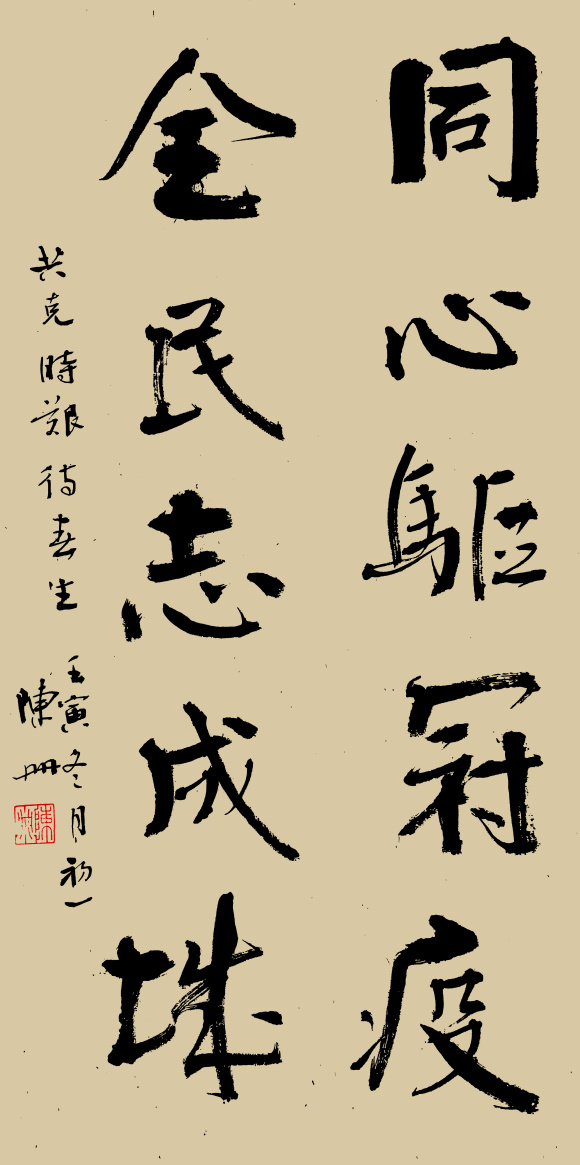 同心驅冠疫
全民志成城
共克時艱待春生
壬寅冬月初一
陳冊